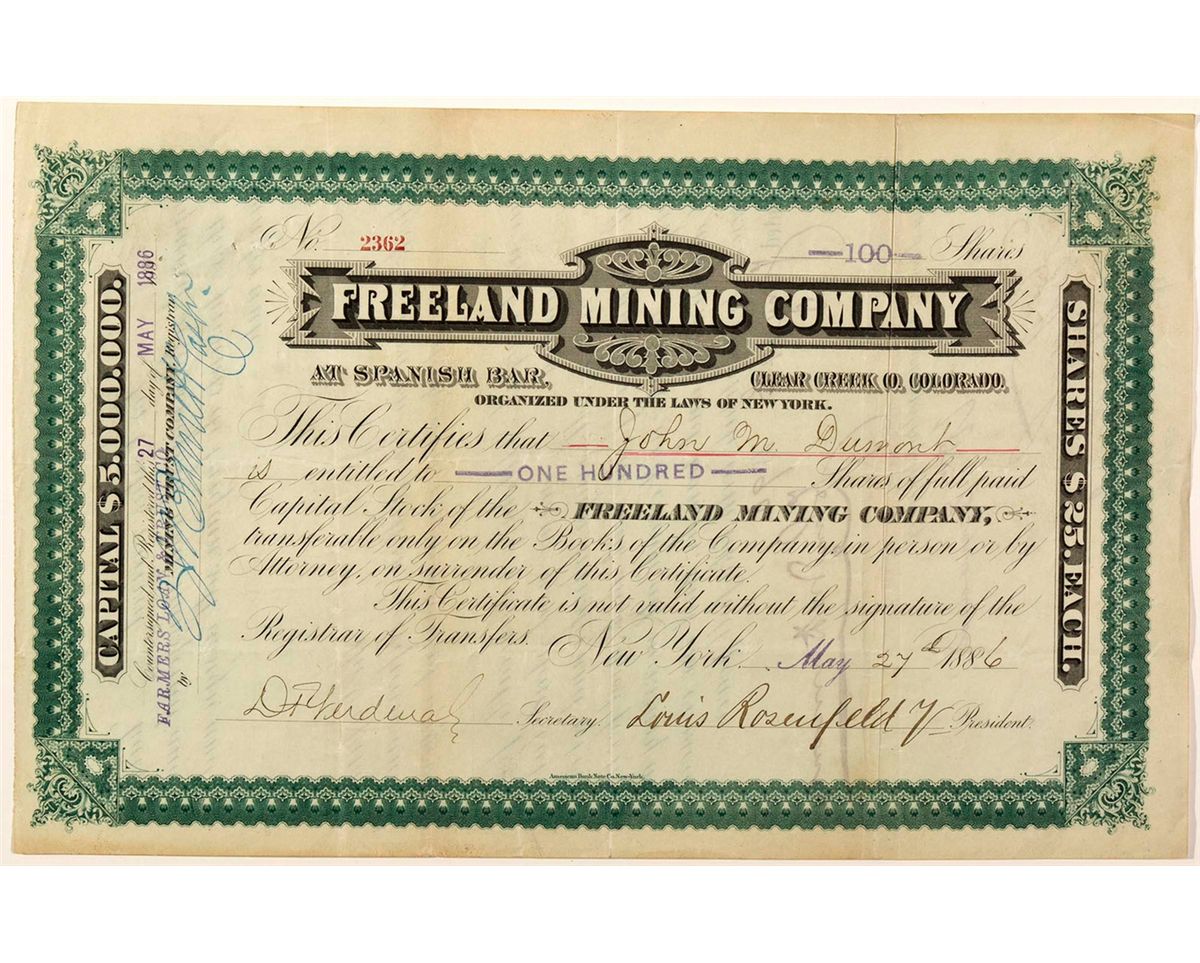 No. 2362
100 Shares
FREELAND MINING COMPANY
AT SPANISH BAR, CLEAR CREEK CO. COLORADO.
ORGANIZED UNDER THE LAWS OF NEW YORK.
This Certifies that John M. Dumont
is entitled to ONE HUNDRED Shares of full paid
Capital Stock of the FREELAND MINING COMPANY,
transferable only on the Books of the Company, in person or by
Attorney, on surrender of this Certificate.
This Certificate is not valid without the signature of the
Registrar of Transfers. New York May 27th 1886
Secretary. Louis Rosenfeld President.
American Bank Note Co. New-York.
CAPITAL $5.000.000.
Countersigned and Registered this 27 day of MAY 1886
FARMERS LOAN & TRUST CO
TRUST COMPANY, Registrar
by
SHARES $25. EACH.